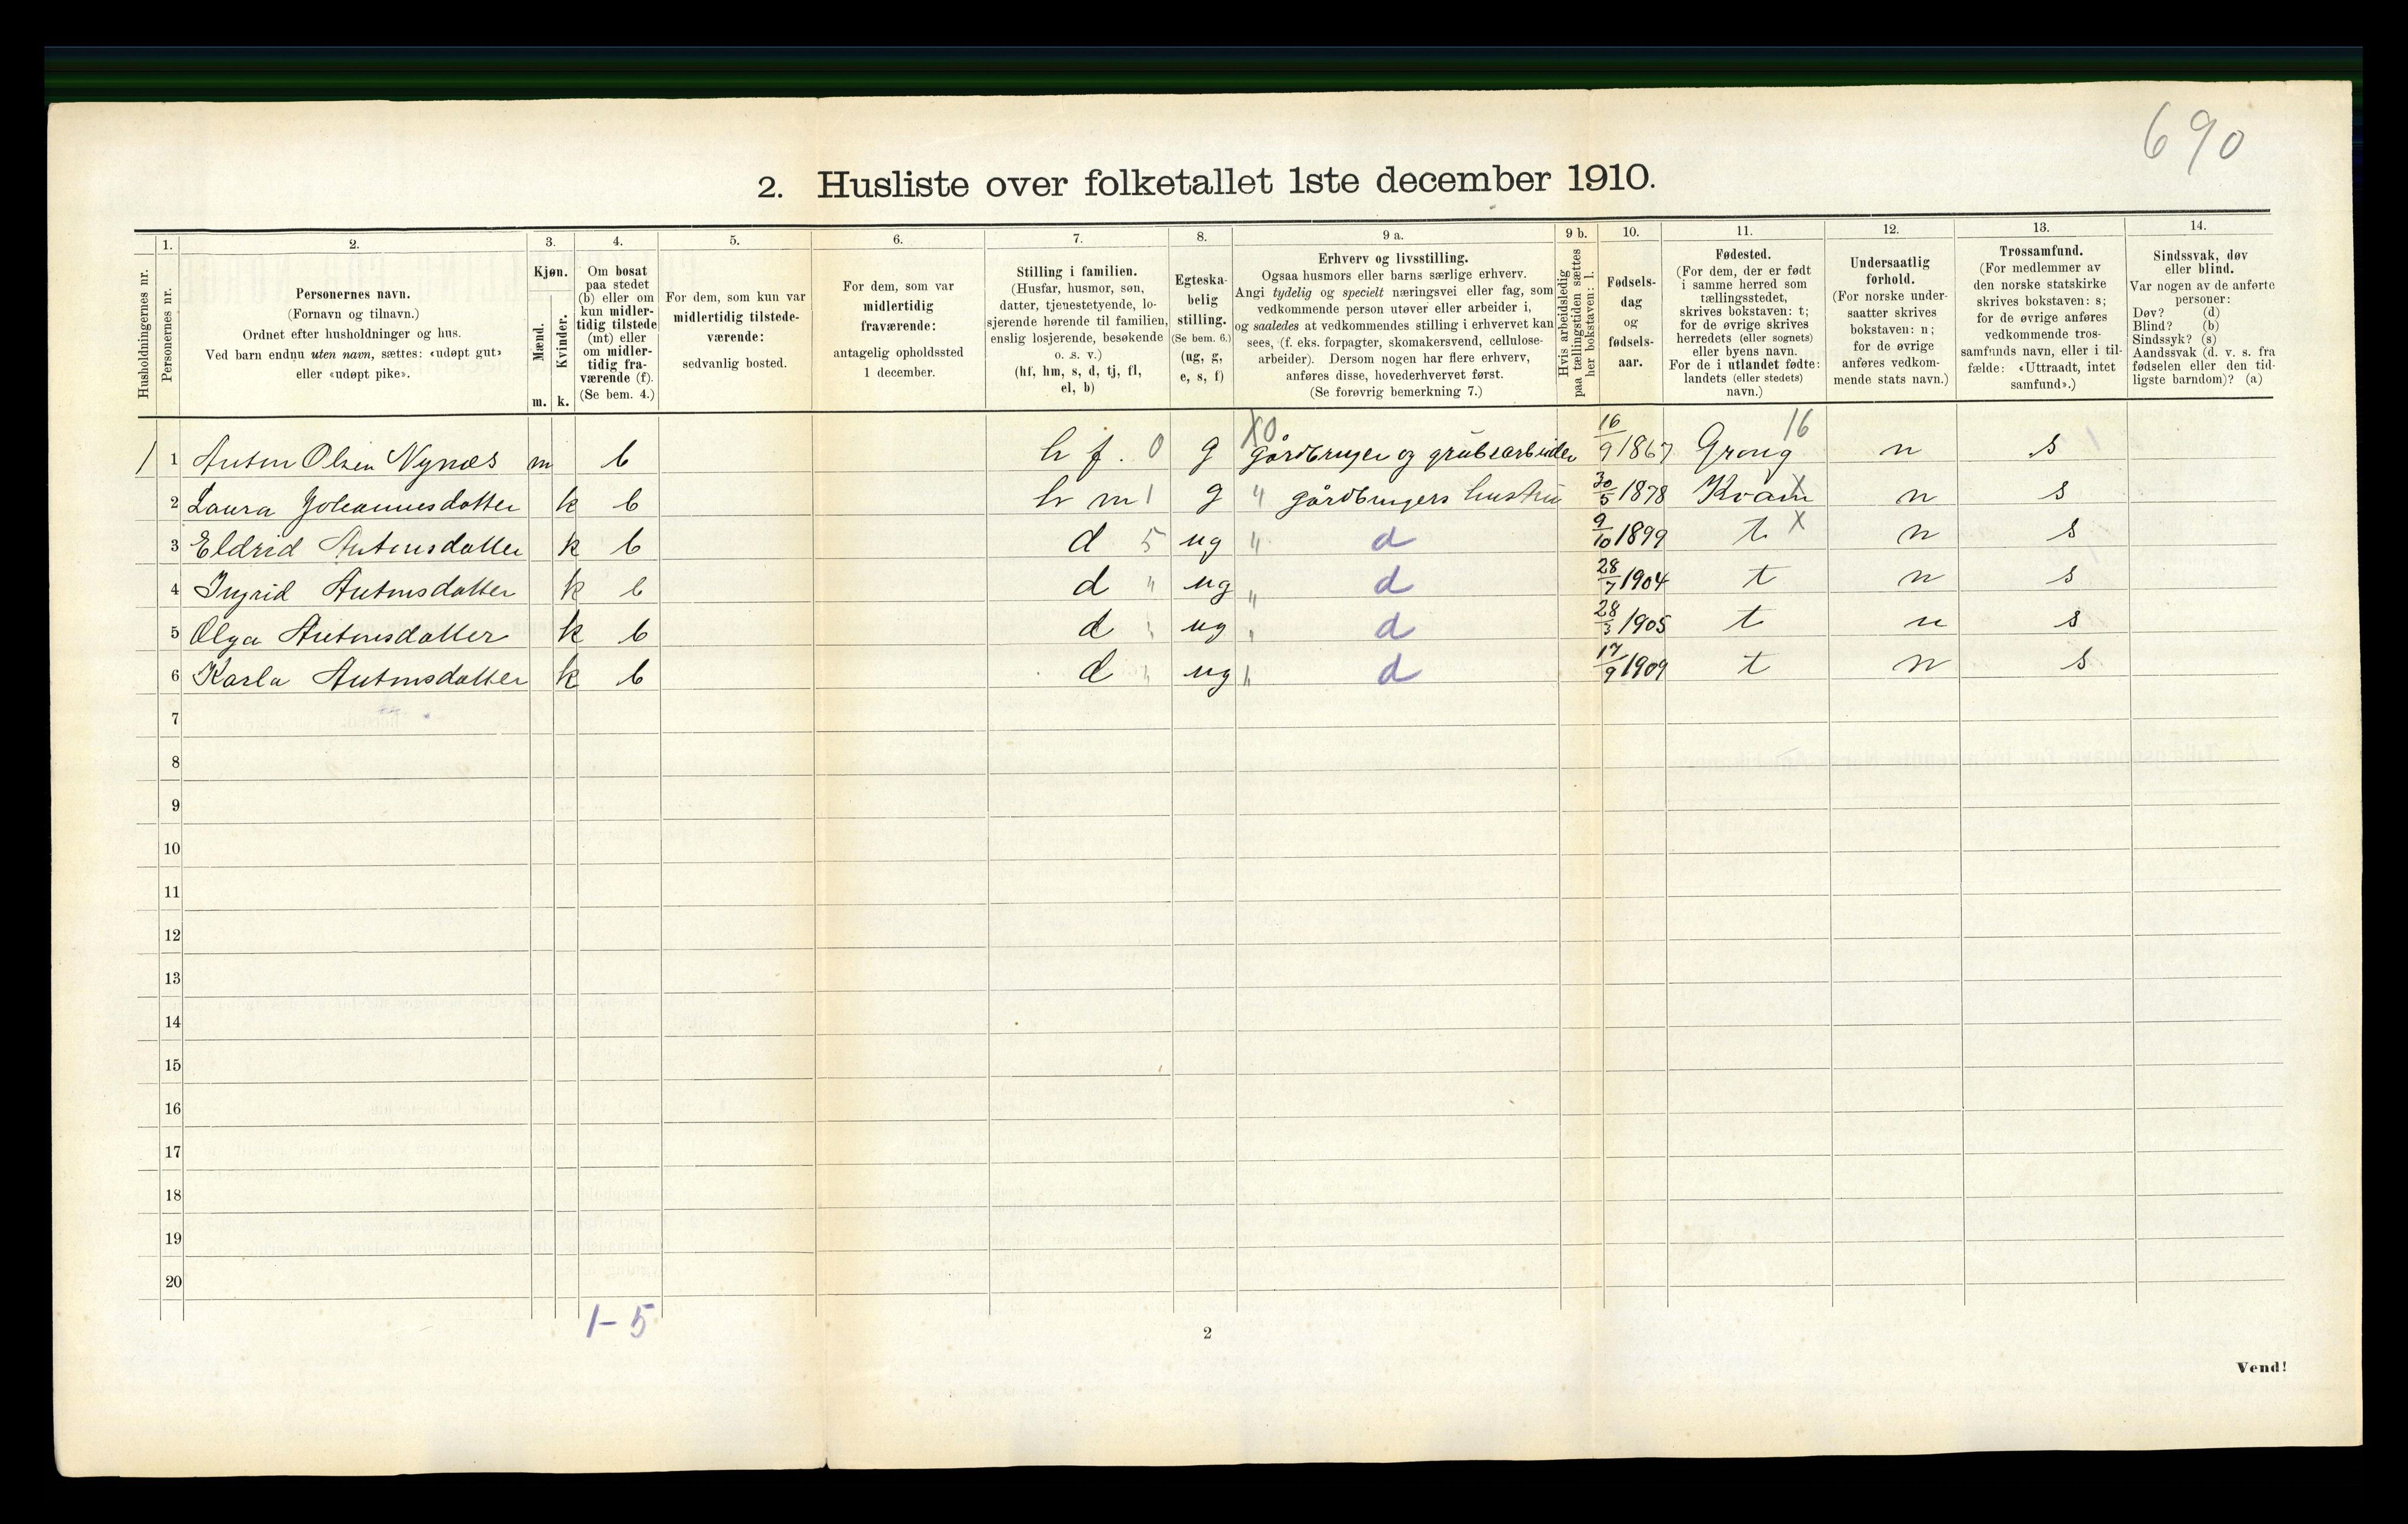 690
2. Husliste over folketallet 1ste december 1910.
Husholdningernes nr.
1.
Personernes nr.
2.
Personernes navn.
(Fornavn og tilnavn.)
Ordnet efter husholdninger og hus.
Ved barn endnu uten navn, sættes: «udøpt gut»
eller «udøpt pike».
3.
Kjøn.
Mænd.
Kvinder.
m. k.
4.
Om bosat
paa stedet
(b) eller om
kun midler-
tidig tilstede
(mt) eller
om midler-
tidig fra-
værende (f).
(Se bem. 4.)
5.
For dem, som kun var
midlertidig tilstede-
værende:
sedvanlig bosted.
6.
For dem, som var
midlertidig
fraværende:
antagelig opholdssted
1 december.
7.
Stilling i familien.
(Husfar, husmor, søn,
datter, tjenestetyende, lo-
sjerende hørende til familien,
enslig losjerende, besøkende
o. s. v.)
(hf, hm, s, d, tj, fl,
el, b)
8.
Egteska-
belig
stilling.
(Se bem. 6.)
(ug, g,
e, s, f)
9 a.
Erhverv og livsstilling.
Ogsaa husmors eller barns særlige erhverv.
Angi tydelig og specielt næringsvei eller fag, som
vedkommende person utøver eller arbeider i,
og saaledes at vedkommendes stilling i erhvervet kan
sees, (f. eks. forpagter, skomakersvend, cellulose-
arbeider). Dersom nogen har flere erhverv,
anføres disse, hovederhvervet først.
(Se forøvrig bemerkning 7.)
9 b.
Hvis arbeidsledig
paa tællingstiden sættes
her bokstaven: l.
10.
Fødsels-
dag
og
fødsels-
aar.
11.
Fødested.
(For dem, der er født
i samme herred som
tællingsstedet,
skrives bokstaven: t;
for de øvrige skrives
herredets (eller sognets)
eller byens navn.
For de i utlandet fødte:
landets (eller stedets)
navn.)
12.
Undersaatlig
forhold.
(For norske under-
saatter skrives
bokstaven: n;
for de øvrige
anføres vedkom-
mende stats navn.)
13.
Trossamfund.
(For medlemmer av
den norske statskirke
skrives bokstaven: s;
for de øvrige anføres
vedkommende tros-
samfunds navn, eller i til-
fælde: «Uttraadt, intet
samfund».)
14.
Sindssvak, døv
eller blind.
Var nogen av de anførte
personer:
Døv? (d)
Blind? (b)
Sindssyk? (s)
Aandssvak (d. v. s. fra
fødselen eller den tid-
ligste barndom)? (a)
1 1 Anton Olsen Nynæs m b hf. 0 g X0 gårdbruger og grubearbeider 16/9 1867 Grong 16 n s
2 Laura Johannesdatter k b hm 1 g " gårdbrugers hustru 30/5 1878 Kvam X n s
3 Eldrid Antonsdatter k b d 5 ug " d 9/10 1899 t X n s
4 Ingrid Antonsdatter k b d " ug " d 28/7 1904 t n s
5 Olga Antonsdatter k b d " ug " d 28/3 1905 t n s
6 Karla Antonsdatter k b d " ug " d 17/9 1909 t n s
7
8
9
10
11
12
13
14
15
16
17
18
19
20
1-5
2
Vend!